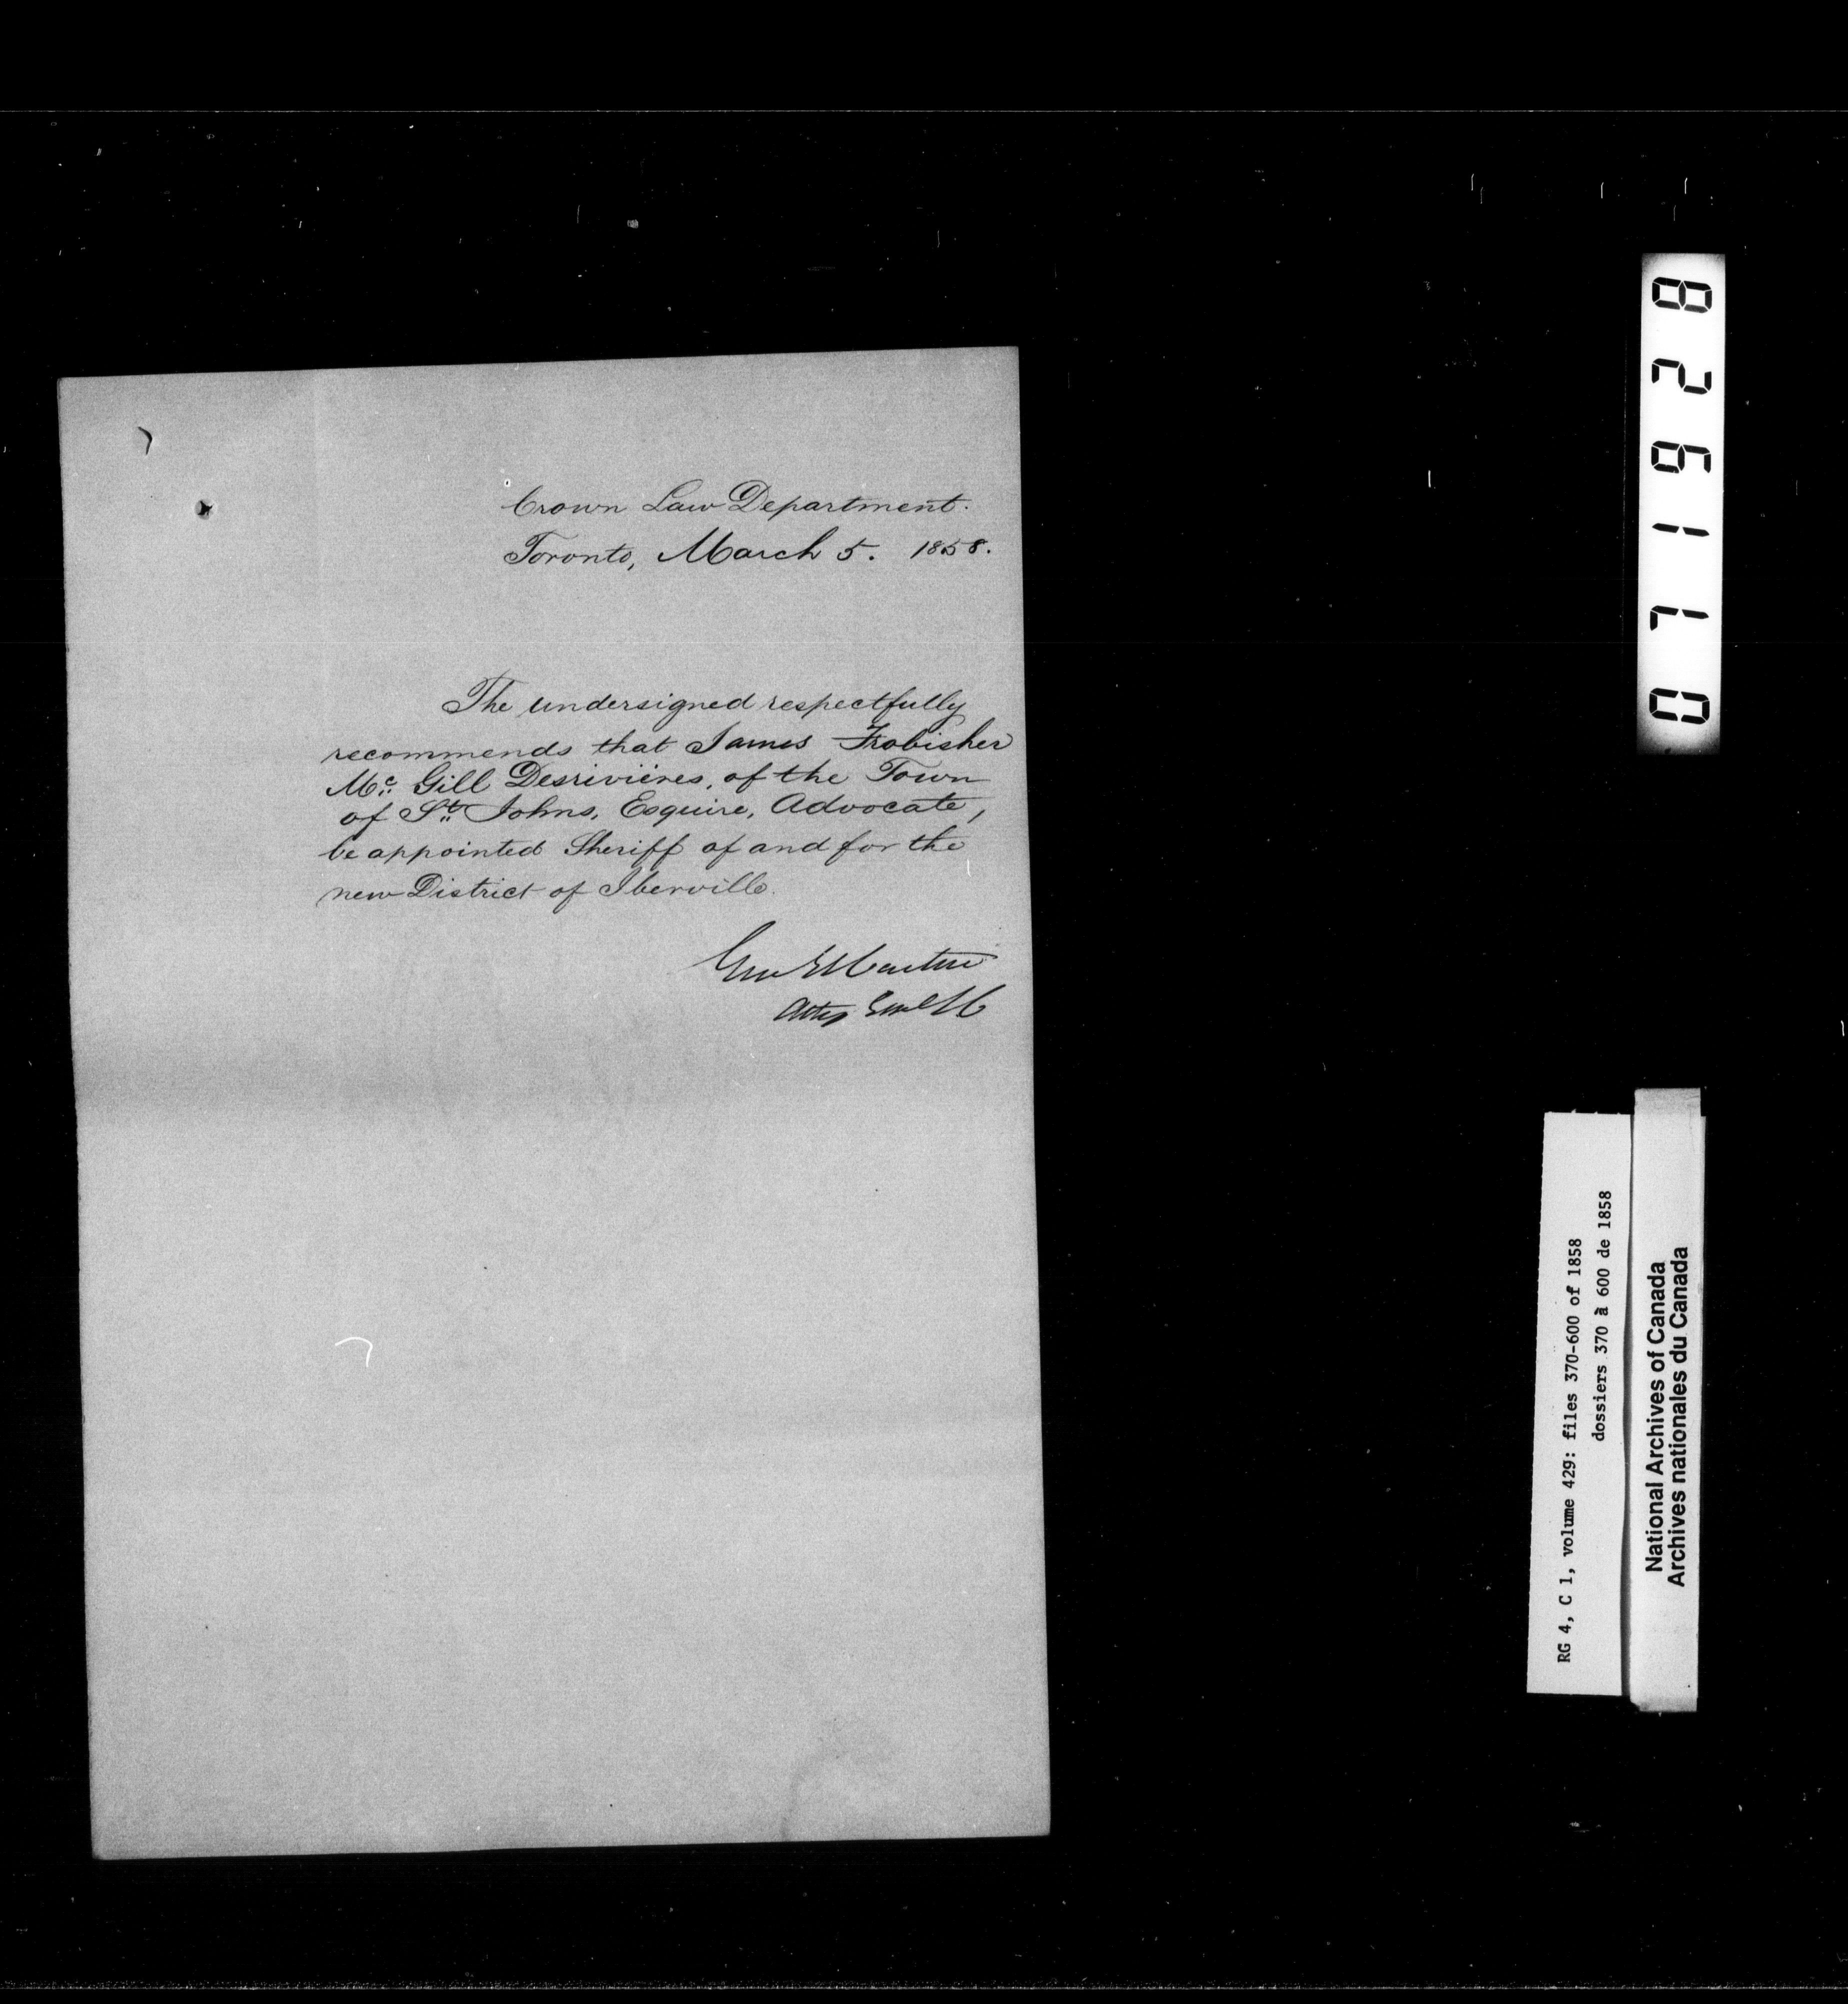 Crown Law Department.
Toronto, March 5. 1858.
The undersigned respectfully
recommends that James Frobisher
Mc. Gill Desrivières, of the Town
of St. Johns, Esquire, Advocate,
be appointed Sheriff of and for the
new District of Iberville.
Geo E Cartier
Atty Genl LC
826170
RG 4, C 1, volume 429: files 370-600 of 1858
dossiers 370 à 600 de 1858
National Archives of Canada
Archives nationales du Canada